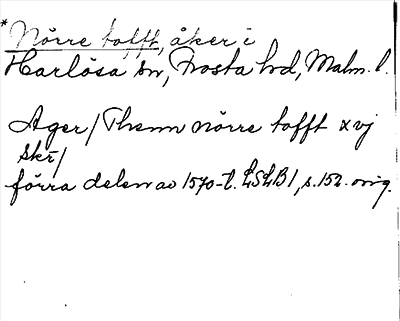 *Nörre tofft, åker i
Harlösa sn, Frosta hd, Malm. l.
Ager/Thenn nörre tofft xvj
skr/
förra delen av 1570-t. LSLB1, s. 152. orig.